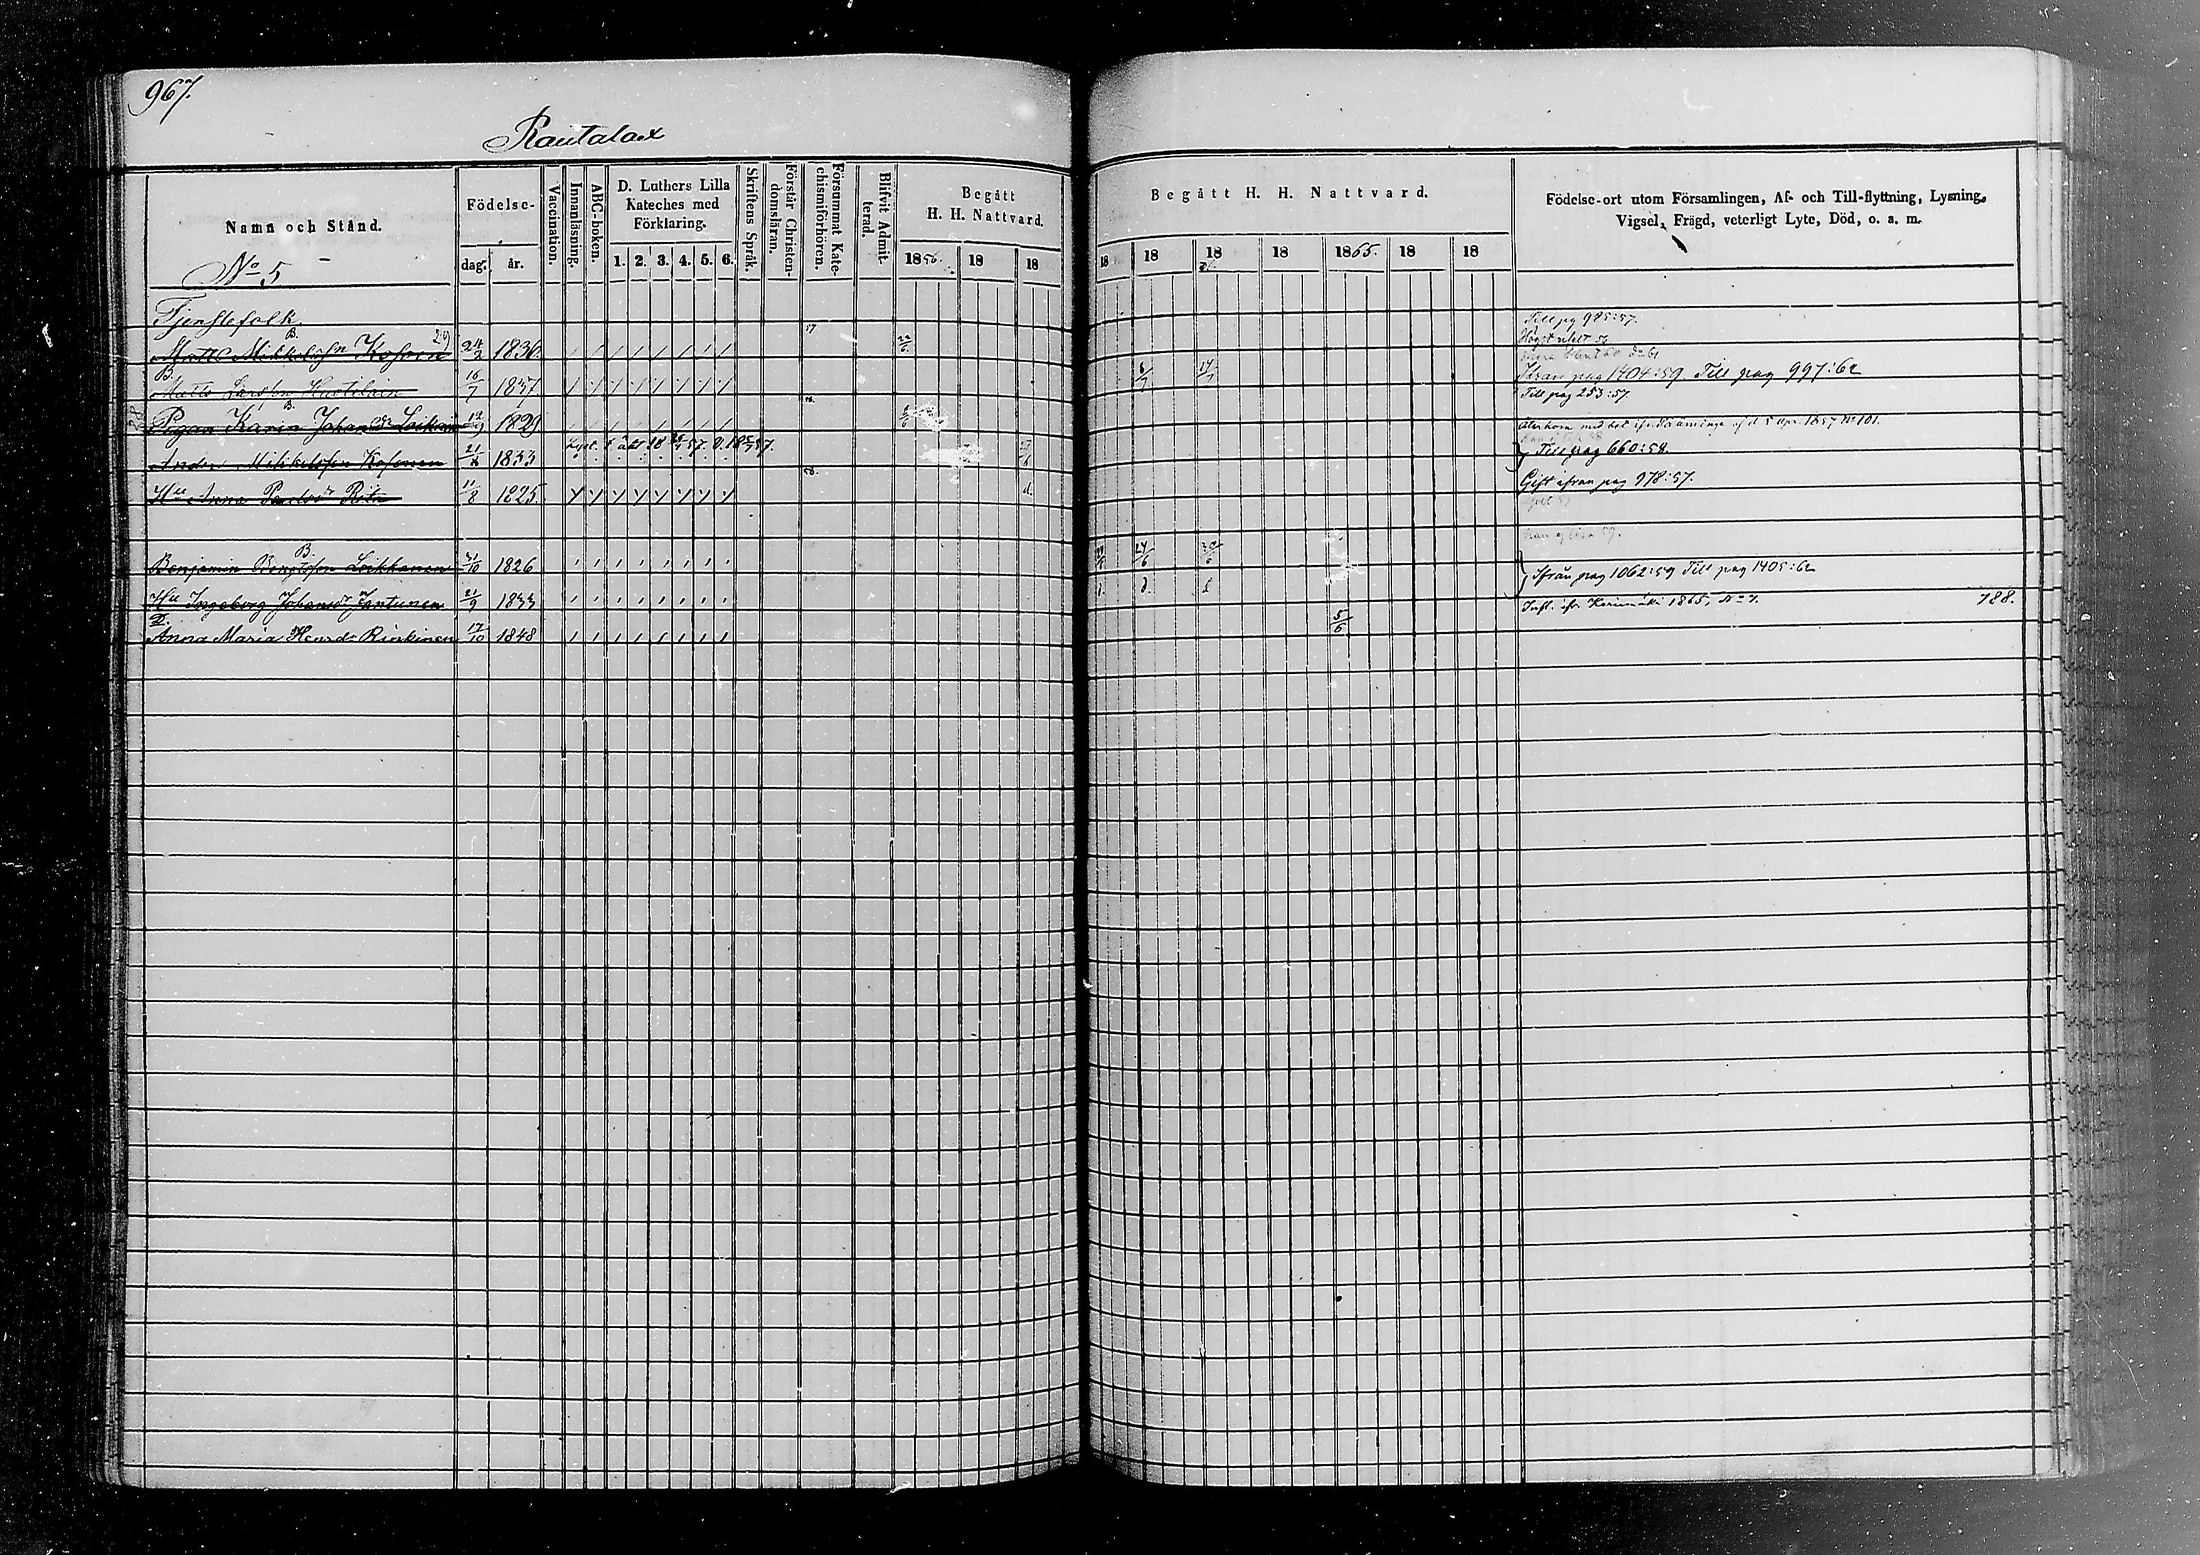 967.
Rautalax
Namn och Stånd.
Födelse-
dag.
år.
Vaccination.
Innanläsning.
ABC-boken.
D. Luthers Lilla
Kateches med
Förklaring.
1. 2. 3. 4. 5. 6.
Skriftens Språk.
Förstår Christen-
domsläran.
Försummat Kate-
chismiförhören.
Blifvit Admit-
terad.
Begått
H. H. Nattvard.
1856. 18 18
Begått H. H. Nattvard.
18 18 18 18 1865. 18 18
Födelse-ort utom Församlingen, Af- och Till-flyttning, Lysning,
Vigsel, Frägd, veterligt Lyte, Död, o. a. m.
No 5
Tjenstefolk
57
Till pag 985:57.
B. 29
Matts Mikkelsson Kosonen 24/2 1836. 22/6
B.
Matts Larsson 16/7 1837. 6/7 17/7 Ifrån pag 1404:59. Till pag 997:62
Till pag 253:57.
B.
Pigan Karin Johansdr Loikkanen 12/9 1829
Anders Mikkelsson Kosonen 21/8 1833 Till pag 660:58.
58.
Hu Anna Paulsdr 11/8 1825. d. Gift ifrån pag 978:57.
B.
Benjamin Bengtsson Loikkanen 1826 24/6
Ifrån pag 1062:59 Till pag 1405:62
Hu Ingeborg Johansdr Jantunen 21/9 1833 d.
Inft. ifr. Kerimäki 1865, No 7. 788.
Anna Maria Henrdr Rinkinen 17/10 1848 5/6